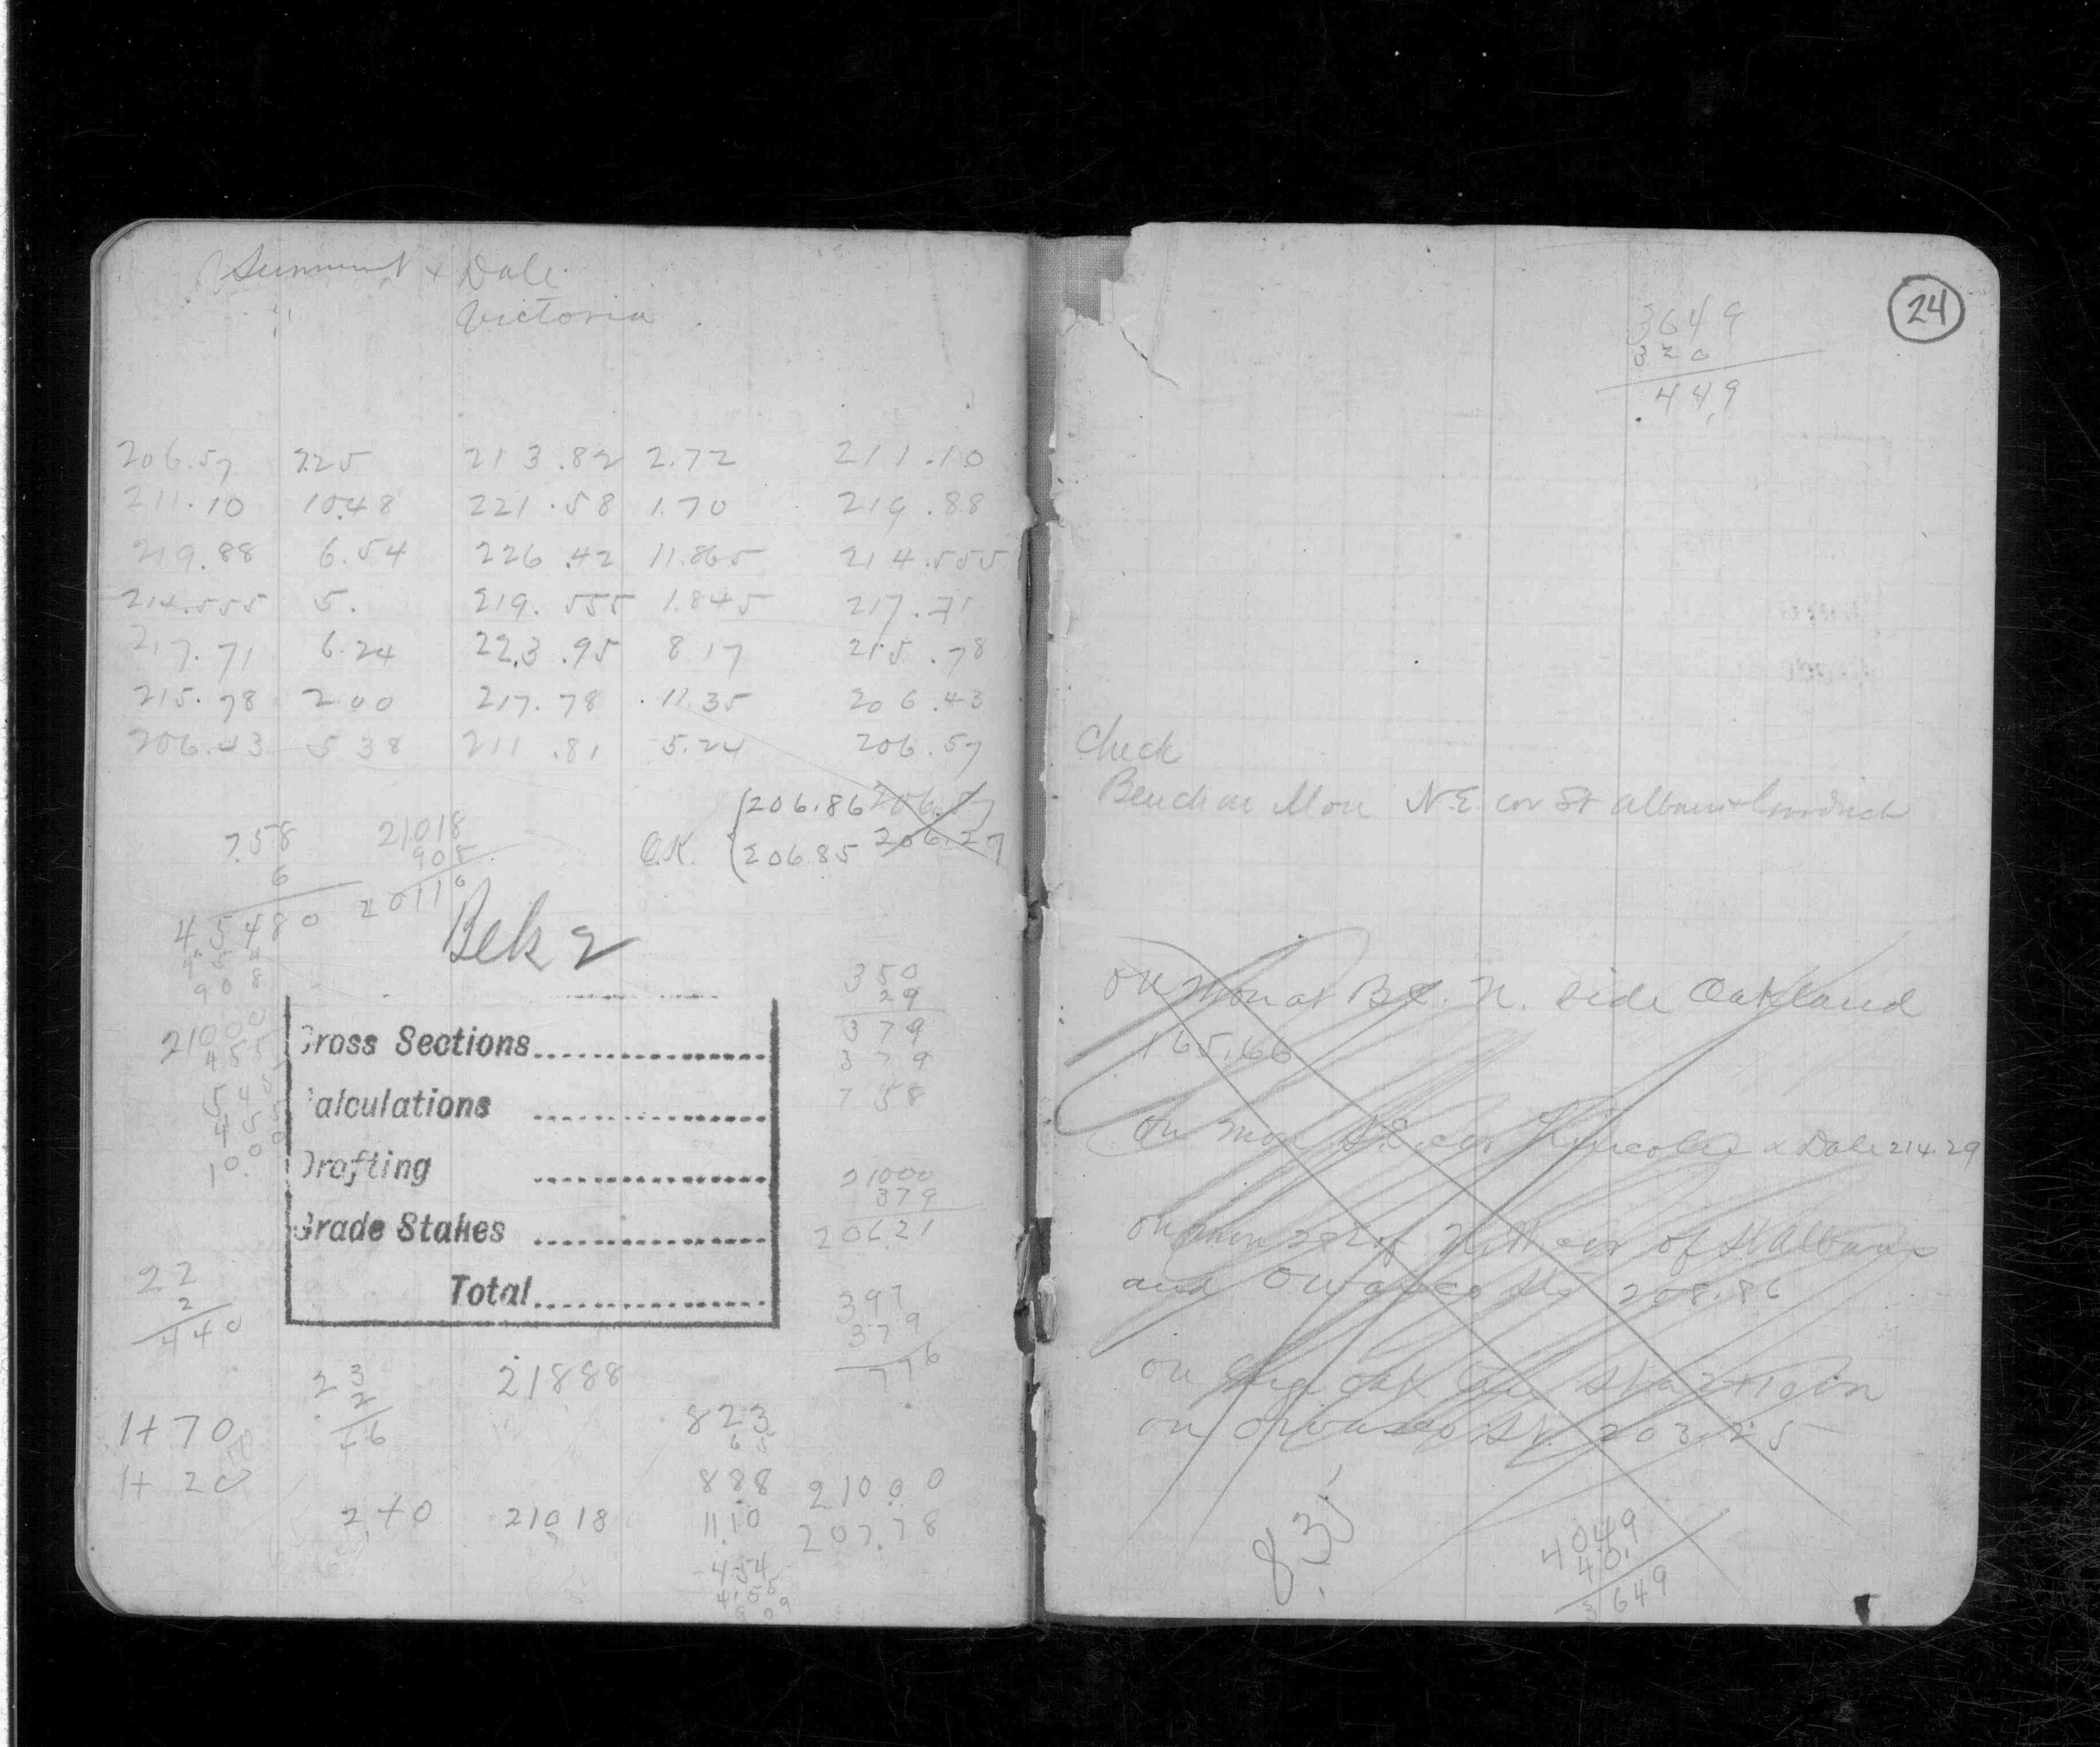 Summit & Dale
Victoria
206.57 7.25 213.82 2.72 211.10
211.10 10.48 221.58 1.70 219.88
219.88 6.54 226.42 11.865 214.555
214.555 5. 219.555 1.845 217.71
217.71 6.24 223.95 8.17 215.78
215.78 2.00 217.78 11.35 206.43
206.43 5 38 211.81 5.24 206.57
206.86 206.57
O.K. 206.85 206.27
7.58
6
45480
454
908
21018
908
20116
Bek 2
21000
455
545
450
100
Cross Sections
Calculations
Drafting
Grade Stakes
Total
350
29
379
379
758
21000
379
20621
397
379
776
22
2
440
23
2
46
21888
1+70
1+20
2+0
21018
823
65
888
1110
454
21000
207.78
24
3649
320
449
Check
Bench on Mon N.E. cor St Albans & Goodrich
on Mon at B.C. N. side Oakland
165.66
on Mon S.E. cor Lincoln & Dale 214.29
N.W. cor of St Albans
and Owasco St 208.86
on
on Owasco St. 203.25
835
4049
40.
3649